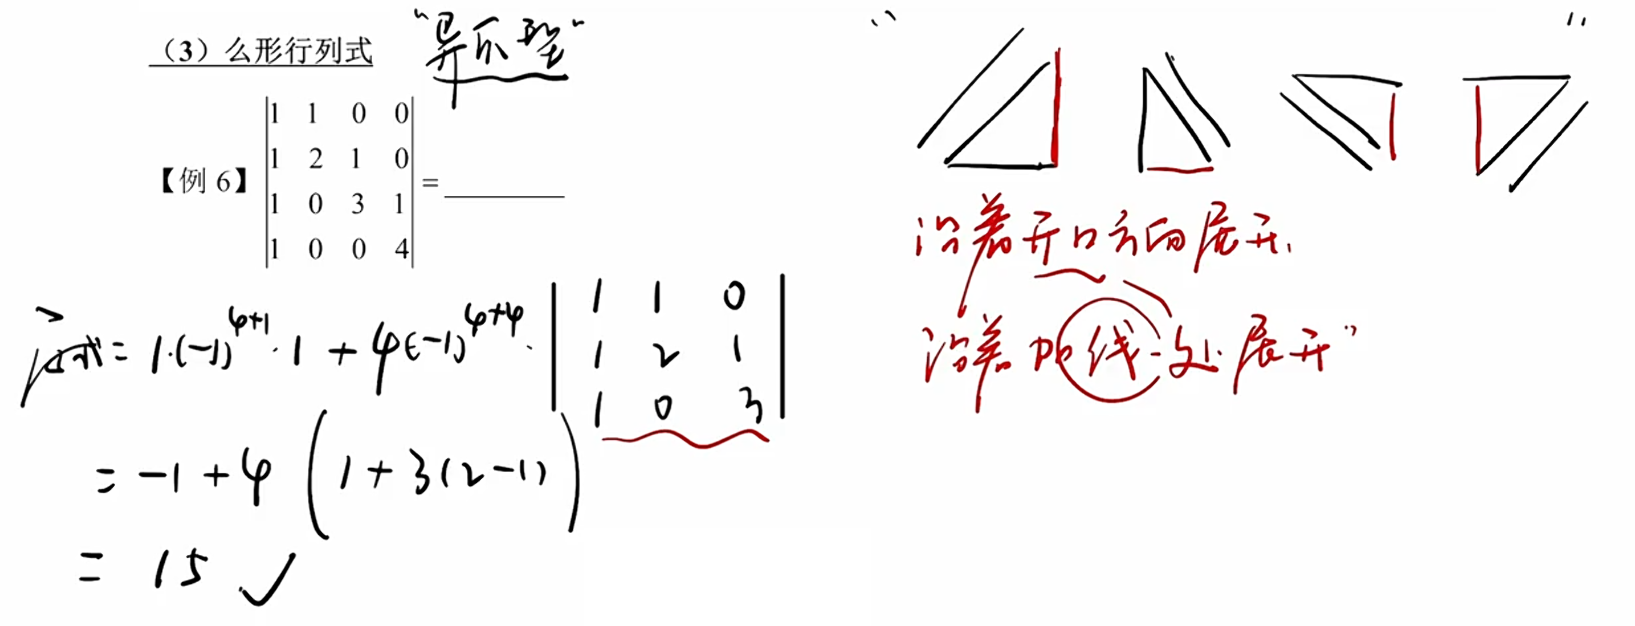 （3）么形行列式 “异爪型”
【例 6】
|1 1 0 0|
|1 2 1 0|
|1 0 3 1|
|1 0 0 4|
= ________
原式 = 1·(-1)^{4+1}·1 + 4(-1)^{4+4}·
|1 1 0|
|1 2 1|
|1 0 3|
= -1 + 4 (1 + 3(2-1))
= 15 ✓
“ ”
沿着开口方向展开.
沿着 线处展开”